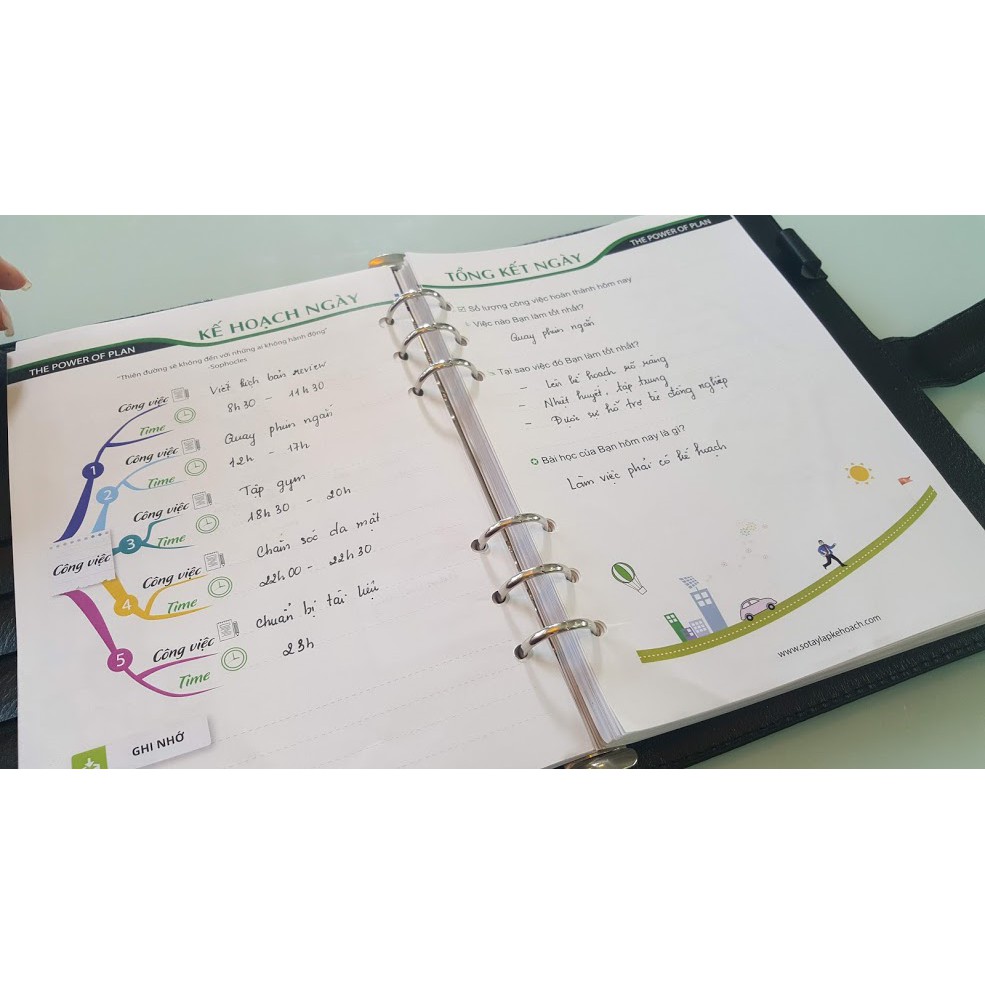 THE POWER OF PLAN
KẾ HOẠCH NGÀY
"Thiên đường sẽ không đến với những ai không hành động"
-Sophocles
Công việc
Viết kịch bản review
Time
8h30 - 11h30
1
Công việc
Quay phim ngắn
Time
12h - 17h
2
Công việc
Tập gym
Time
18h30 - 20h
3
Công việc
Công việc
Chăm sóc da mặt
Time
22h00 - 22h30
4
Công việc
Chuẩn bị tài liệu
Time
23h
5
GHI NHỚ
THE POWER OF PLAN
TỔNG KẾT NGÀY
Số lượng công việc hoàn thành hôm nay
Việc nào Bạn làm tốt nhất?
Quay phim ngắn
Tại sao việc đó Bạn làm tốt nhất?
- Lên kế hoạch rõ ràng
- Nhiệt huyết, tập trung
- Được sự hỗ trợ từ đồng nghiệp
Bài học của Bạn hôm nay là gì?
Làm việc phải có kế hoạch
www.sotaylapkehoach.com